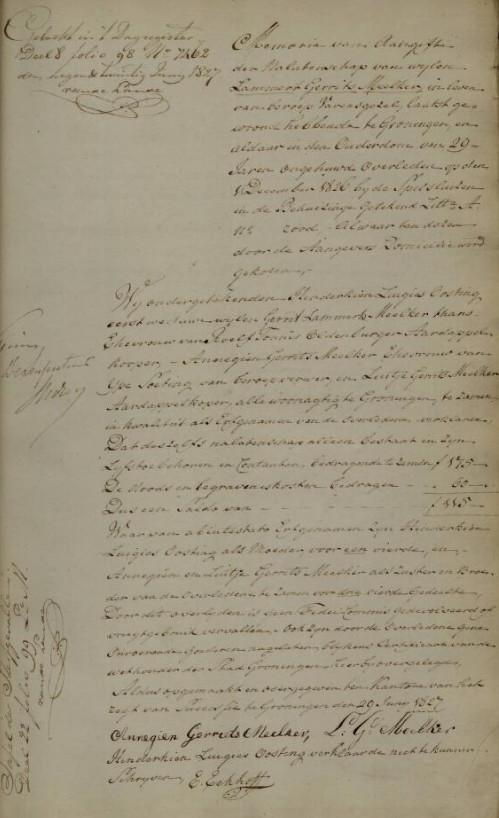 Geboekt in 't Dagregister
Deel 8 folio 98 No 7462
den negen & twintig Juny 1827
Memorie van Aangifte
der Nalatenschap van wylen
Lammert Gerrits Meelker, in leven
van beroep Varensgezel, laatst ge-
woond hebbende te Groningen, en
aldaar in den Ouderdom van 29
Jaren ongehuwd Overleden op den
December 1826 by de Spilsluizen
in de Behuizinge getekend Litt. A
No rood. Alwaar ten dezen
door de Aangevers Domicilie word
gekozen,
Wy ondergetekenden Hinderkien Luigies Oosting
eerst weduwe wylen Gerrit Lammerts Meelker thans
Ehevrouw van Roelf Tonnis Oldenburger Aardappel-
koper, Annegien Gerrits Meelker Ehevrouw van
van beroep verwer, en Luitje Gerrits Meelker
Aardappelkoper, alle woonagtig te Groningen, te zamen
in kwaliteit als Erfgenamen van de Overledene verklaren
Dat deszelfs nalatenschap alleen bestaat in zyn
Lyfstoebehoren en Contanten, bedragende te zamen f 175
De doods en begraveniskosten bedragen 60
Dus een Saldo van f 115
Waar van abintestato Erfgenamen zyn Hinderkien
Luigies Oosting als Moeder, voor een vierde, en
Annegien en Luitje Gerrits Meelker als Zuster en Broe-
der van de Overledene te zamen voor drie vierde Gedeelte,
Door dit overlyden is geen Fidei Commis gedevolveerd of
vrugtgebruik vervallen. Ook zyn door de Overledene gene
Onroerende Goederen nagelaten, blykens Certificaat van de
wethouder der Stad Groningen, hier overgelegd,
Aldus opgemaakt en overgegeven ten Kantore van het
regt van Successie te Groningen den 29 Juny 1827
Annegien Gerrits Meelker, L. G. Meelker
Hinderkien Luigies Oosting verklaarde niet te kunnen
Schryven, E. Eekhoff
Deel 22 folio 99